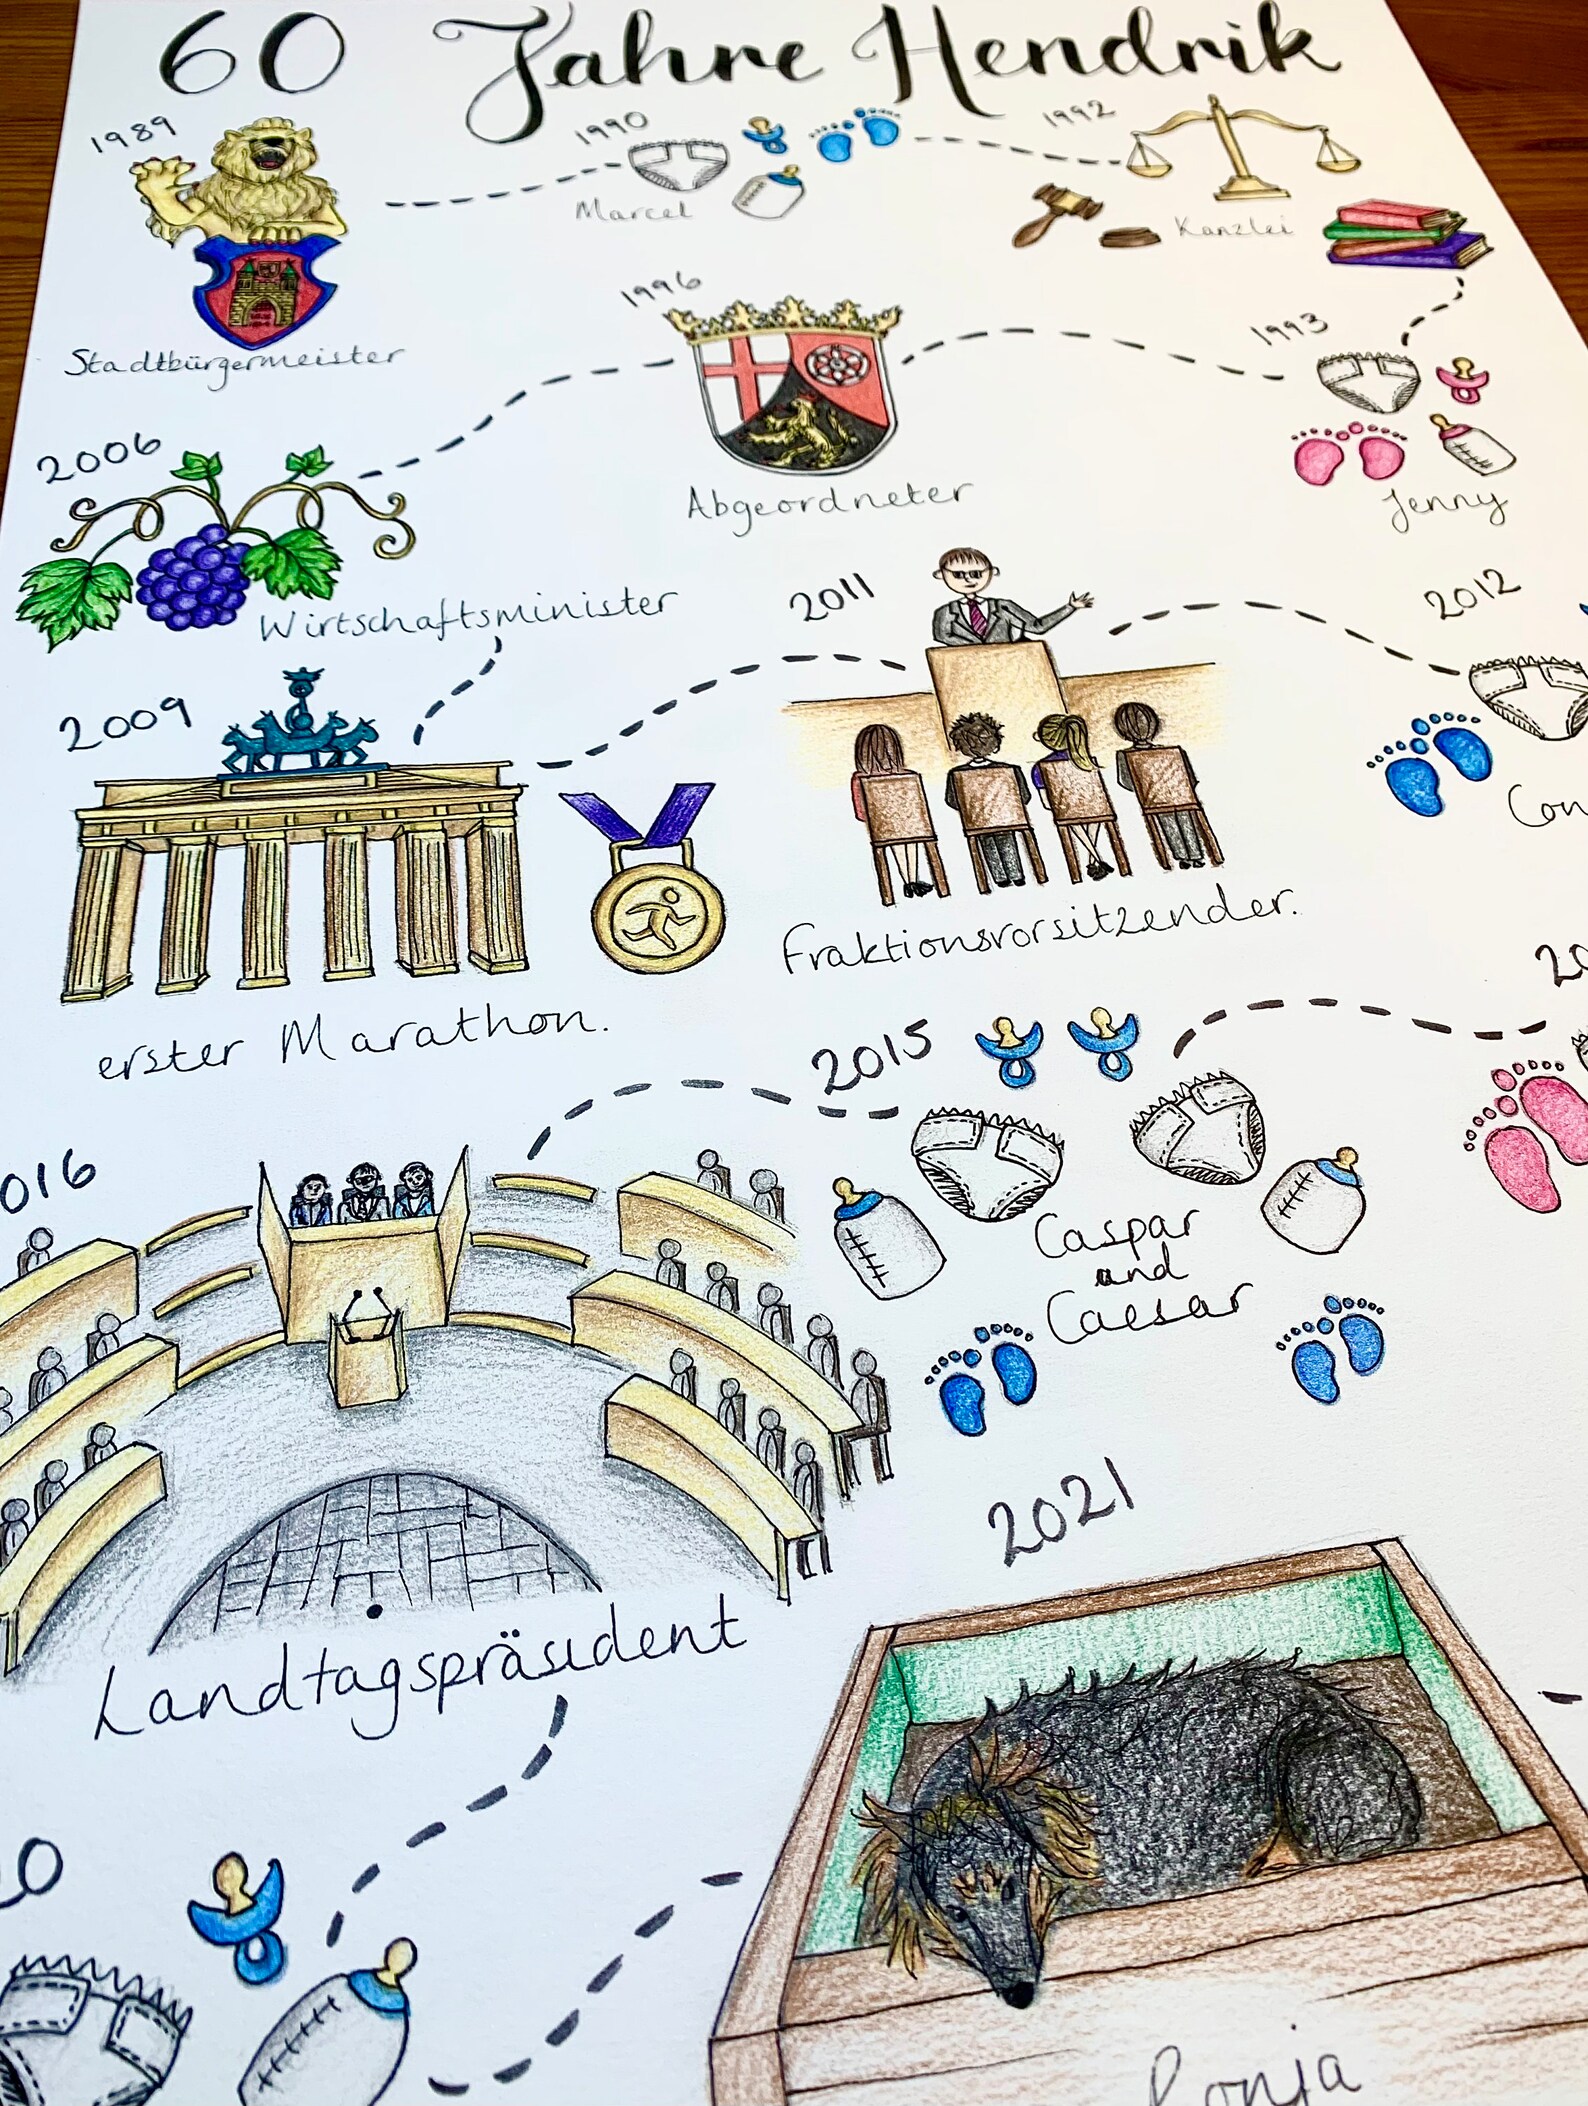 60 Jahre Hendrik
1989
Stadtbürgermeister
1990
Marcel
1992
Kanzlei
1993
Jenny
1996
Abgeordneter
2006
Wirtschaftsminister
2009
erster Marathon.
2011
Fraktionsvorsitzender.
2012
Con
20
2015
Caspar
and
Caesar
016
Landtagspräsident
20
2021
Ronja